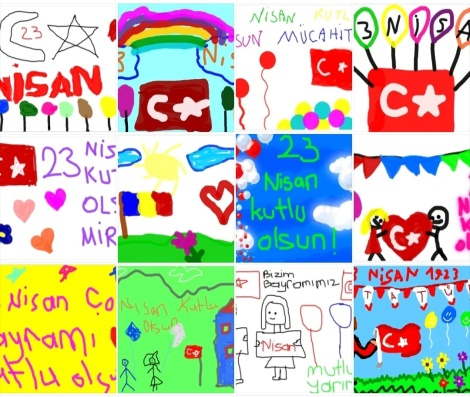 23
NiSAN
3
NİSAN KUTL
SUN MÜCAHİT
3 NİSA
23 NİS
KU
OLS
MİR
23
Nisan
kutlu
olsun!
Nisan Ço
ayramı
utlu olsu
Nisan Kutlu
Olsun
Bizim
Bayramımız
Nisan
mutlu
yarın
NİSAN 1923